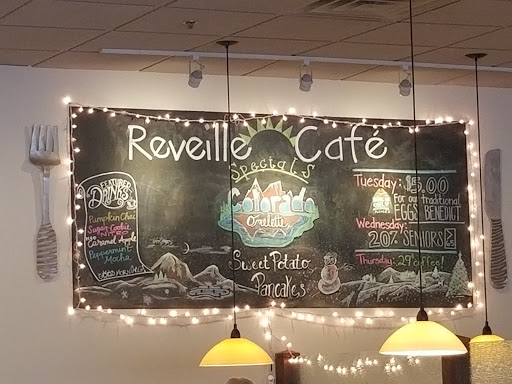 Reveille Café
Specials
Colorado
Omelette
Sweet Potato
Pancakes
FEATURED
DRINKS
Pumpkin Chai
Sugar Cookie
Caramel Apple
Peppermint
Mocha
Tuesday: $5.00
For our traditional
EGGS BENEDICT
Wednesday:
20% SENIORS
Thursday: 29¢ coffee!